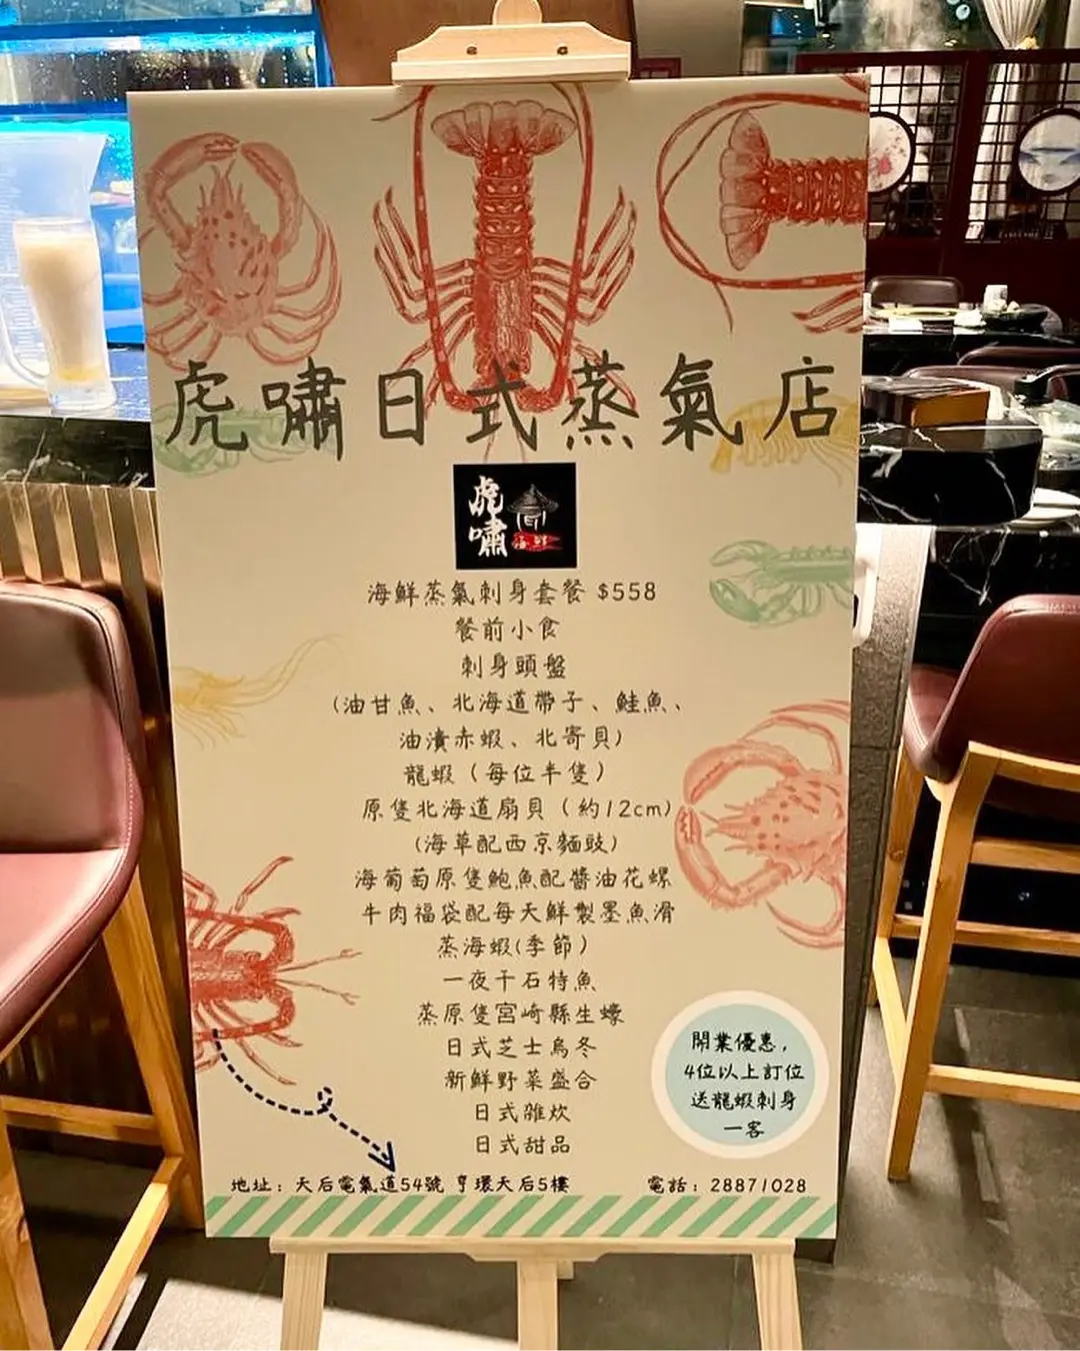 虎嘯日式蒸氣店
虎嘯
海鮮
海鮮蒸氣刺身套餐 $558
餐前小食
刺身頭盤
(油甘魚、北海道帶子、鮭魚、
油漬赤蝦、北寄貝)
龍蝦（每位半隻）
原隻北海道扇貝（約12cm)
(海草配西京麵豉)
海葡萄原隻鮑魚配醬油花螺
牛肉福袋配每天鮮製墨魚滑
蒸海蝦(季節)
一夜干石特魚
蒸原隻宮崎縣生蠔
日式芝士烏冬
新鮮野菜盛合
日式雑炊
日式甜品
開業優惠，
4位以上訂位
送龍蝦刺身
一客
地址：天后電氣道54號 亨環天后5樓 電話：28871028